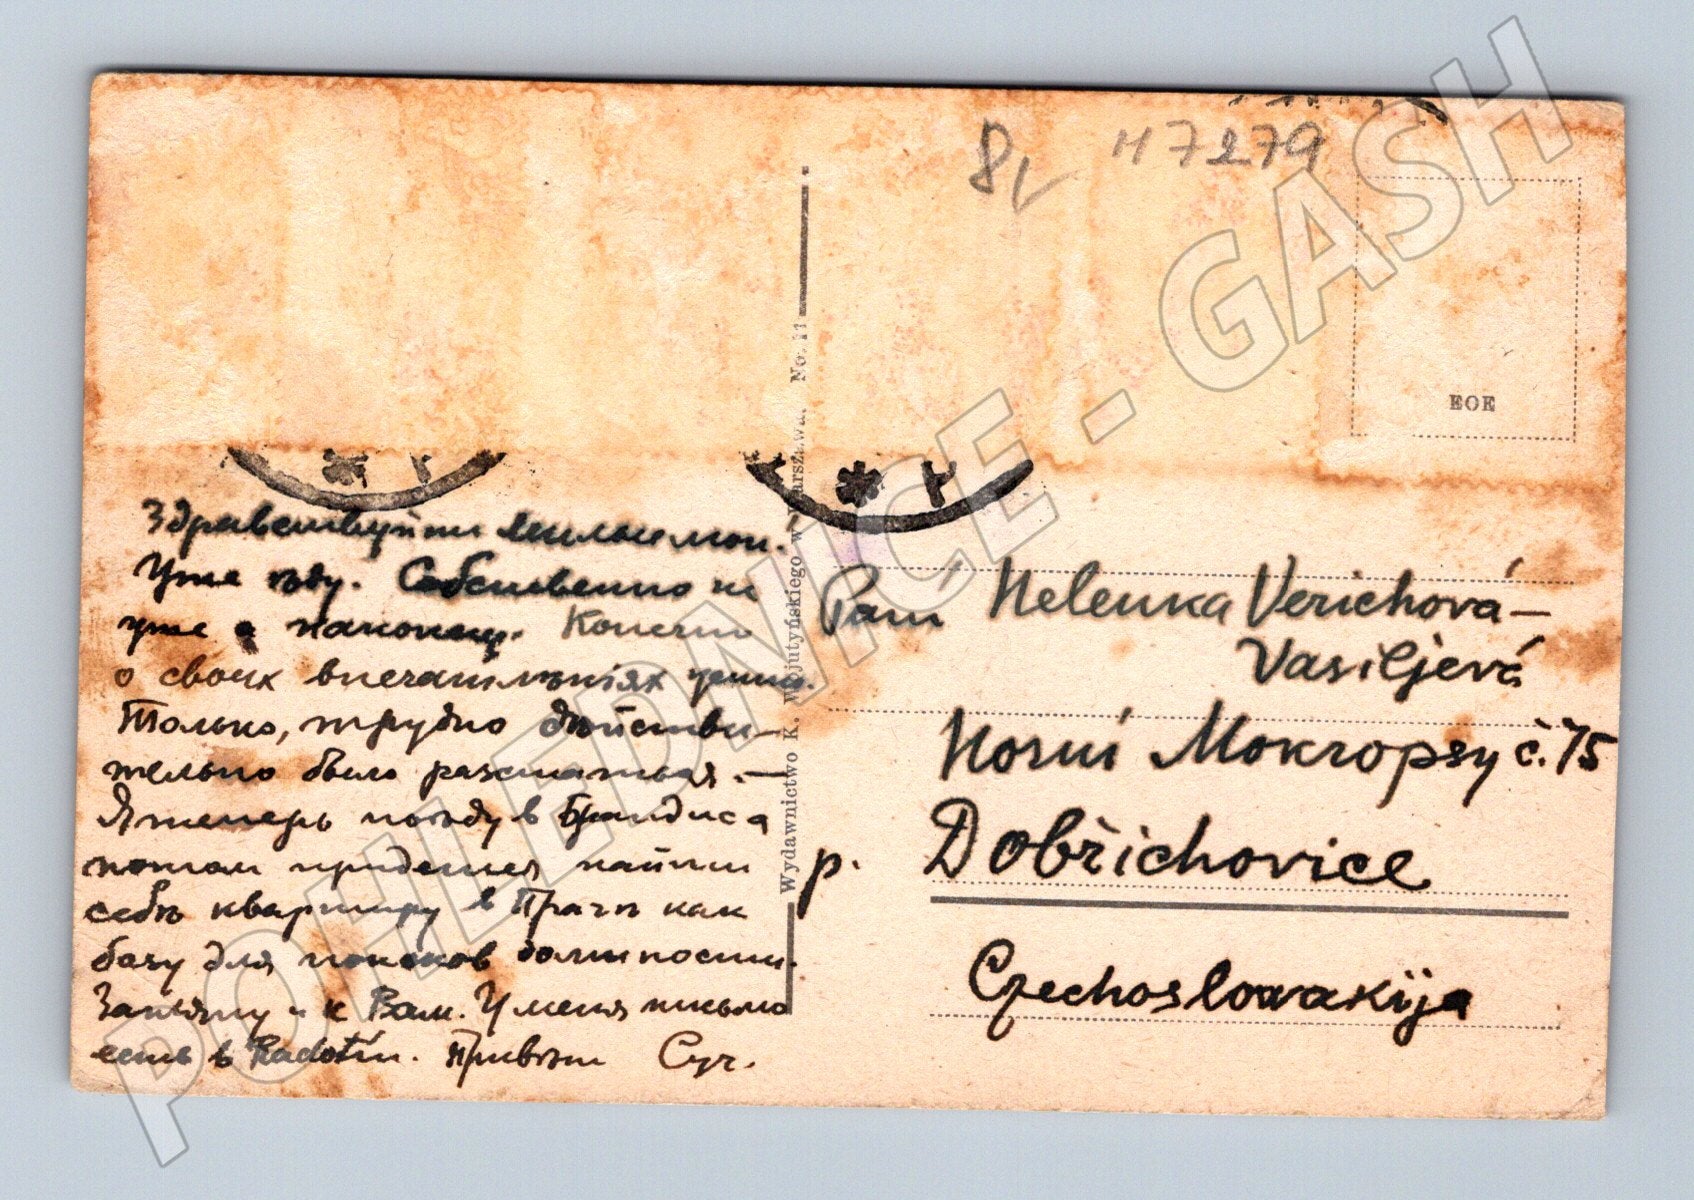 8
H 7279
EOE
Wydawnictwo K. Wojutyńskiego w Warszawa. No. 11
Здравствуйти милые мои.
Уже ѣду. Собственно не
уже а наконец. Конечно
о своих впечатлѣніях
Только, трудно дѣйстви-
тельно было разстаться. —
Я теперь поѣду в Брандиса
потом придется найти
себѣ квартиру в Прагѣ как
базу для поисков должности.
Заѣду и к Вам. У меня письмо
есть в Radotín. Привѣт
Pani Helenka Verichová-
Vasiljevá
Horní Mokropsy č. 75
p. Dobřichovice
Czechoslowakija
POHLEDNICE - GASH